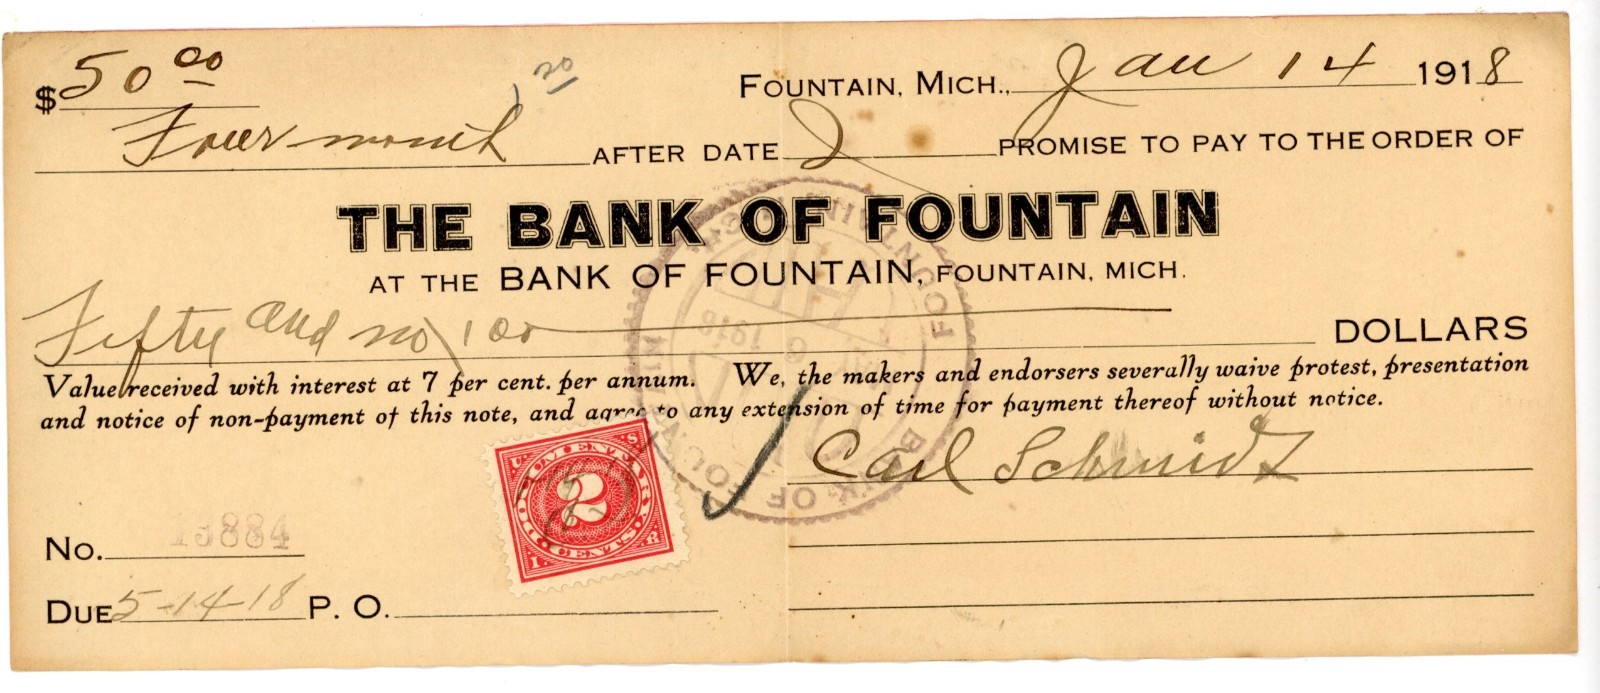 $ 50 00 1 20 FOUNTAIN, MICH., Jan 14 1918
Four month AFTER DATE I PROMISE TO PAY TO THE ORDER OF
THE BANK OF FOUNTAIN
AT THE BANK OF FOUNTAIN, FOUNTAIN, MICH.
Fifty and no/100 DOLLARS
Value received with interest at 7 per cent. per annum. We, the makers and endorsers severally waive protest, presentation
and notice of non-payment of this note, and agree to any extension of time for payment thereof without notice.
Carl Schmidt
U.S. DOCUMENTARY
2
TWO CENTS
I.R.
No. 13884
DUE 5-14-18 P. O.
BANK OF FOUNTAIN
FOUNTAIN
1918